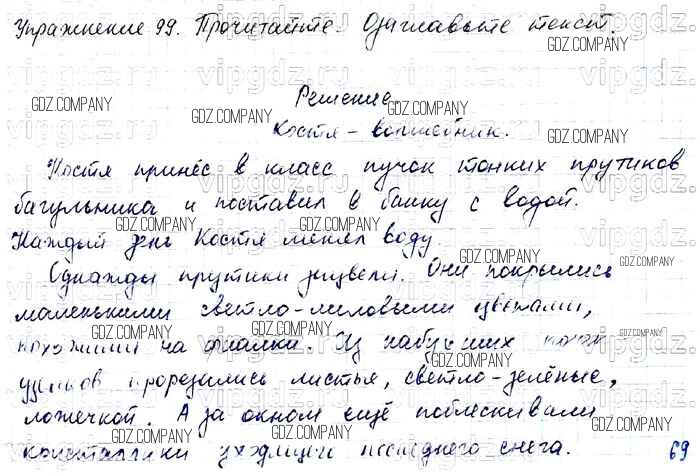 Упражнение 99. Прочитайте. Озаглавьте текст.
Решение.
Костя - волшебник.
Костя принёс в класс пучок тонких прутиков
багульника и поставил в банку с водой.
Каждый день Костя менял воду.
Однажды прутики зацвели. Они покрылись
маленькими светло-лиловыми цветами,
похожими на фиалки. Из набухших почек
прорезались листья, светло-зелёные,
ложечкой. А за окном ещё поблескивали
кристаллики уходящего последнего снега.
69
GDZ.COMPANY
vipgdz.ru